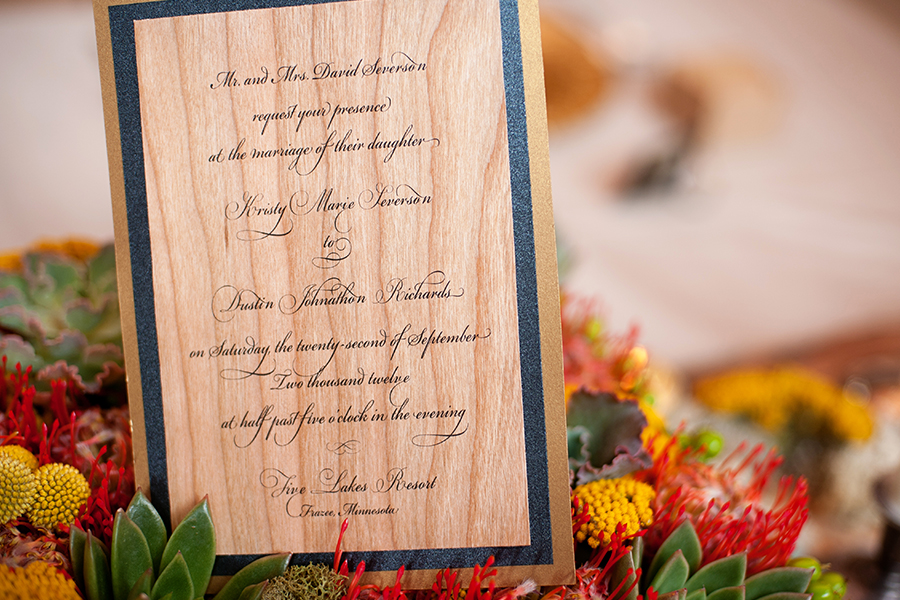 Mr. and Mrs. David Severson
request your presence
at the marriage of their daughter
Kristy Marie Severson
to
Dustin Johnathon Richards
on Saturday, the twenty-second of September
Two thousand twelve
at half past five o'clock in the evening
Five Lakes Resort
Frazee, Minnesota